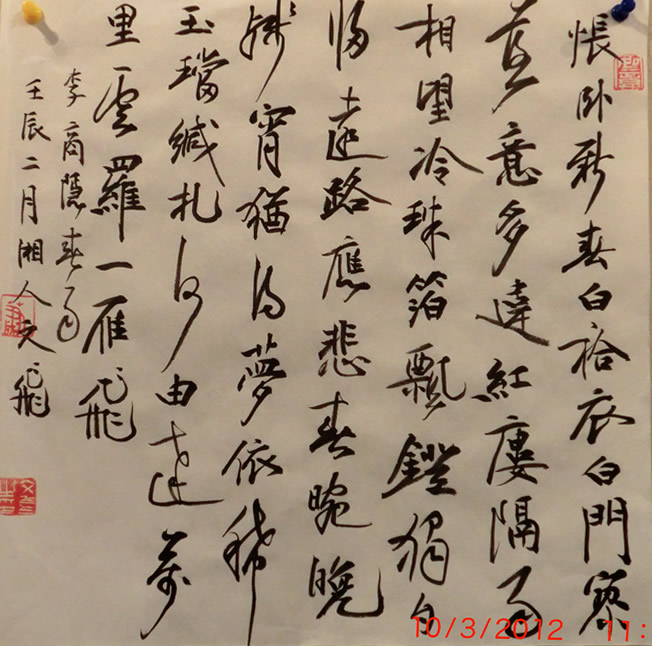 悵臥新春白袷衣白門寥
落意多違紅廔隔雨
相望冷珠箔飄鐙獨自
歸遠路應悲春晼晚
殘宵猶得夢依稀
玉璫緘札何由達萬
里雲羅一雁飛
李商隱春雨
壬辰二月湘人文飛
10/3/2012 11: